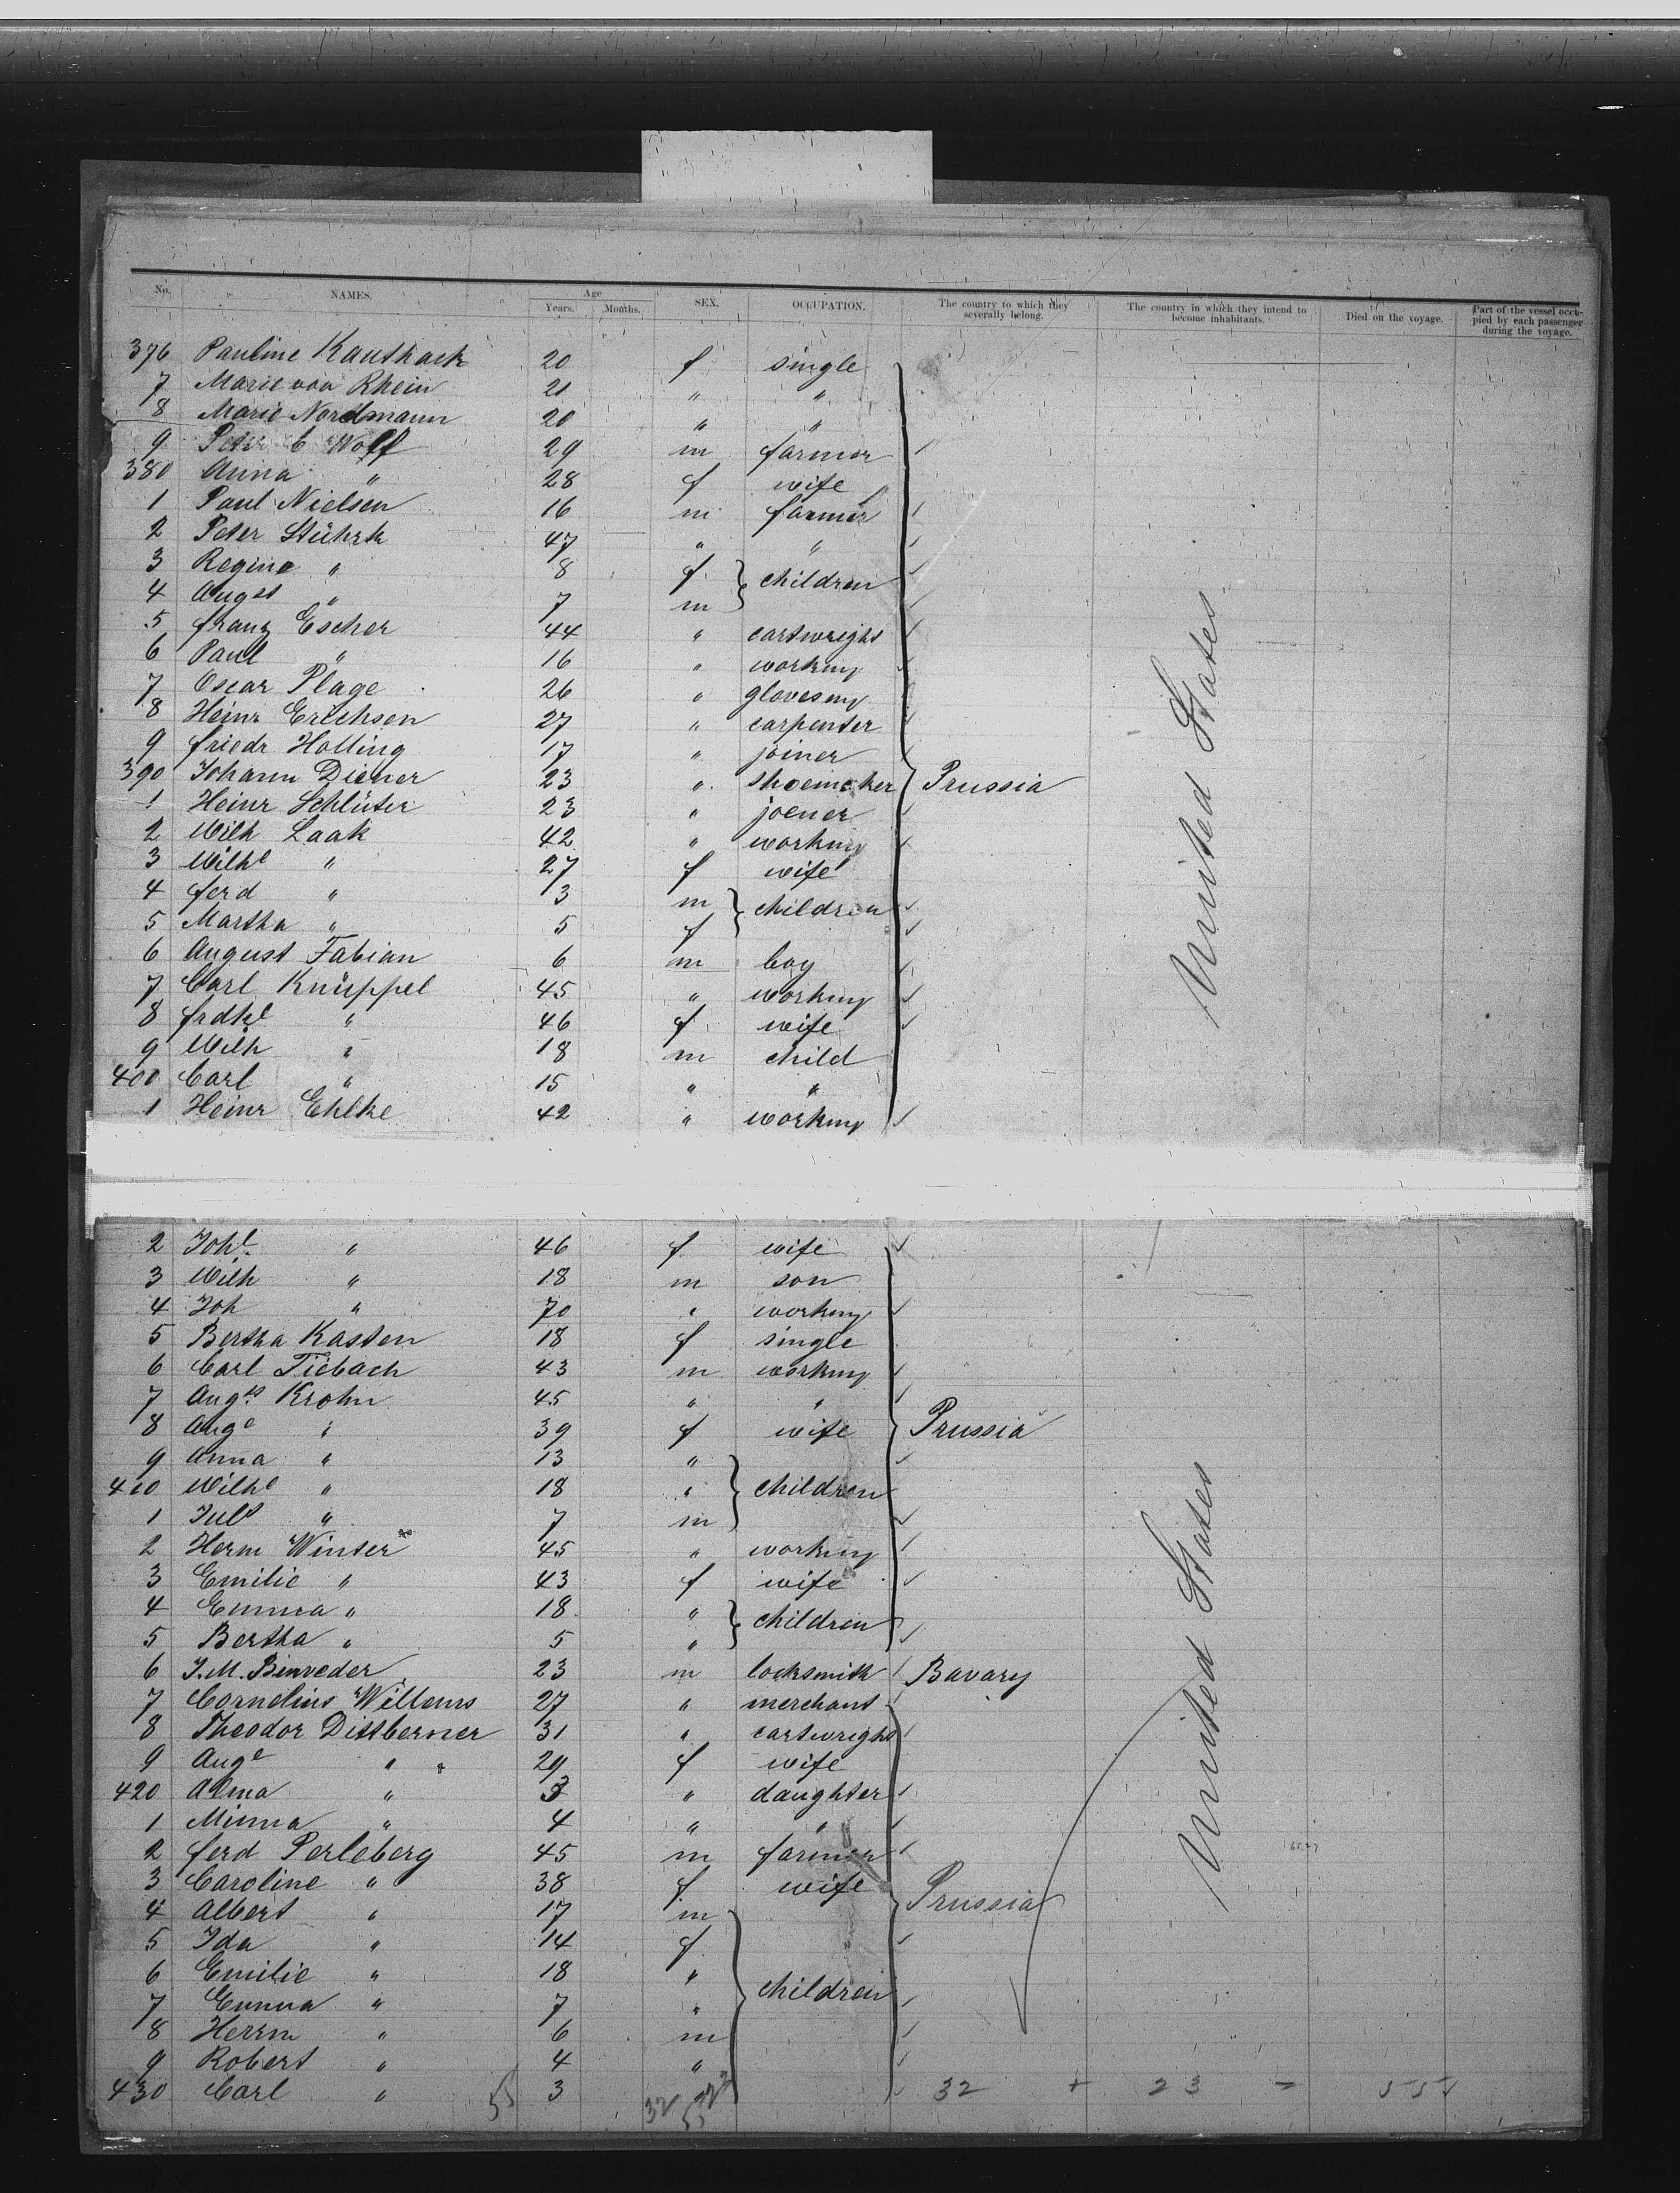 No. NAMES. Age Years. Months. SEX. OCCUPATION. The country to which they severally belong. The country in which they intend to become inhabitants. Died on the voyage. Part of the vessel occupied by each passenger during the voyage.
376 Pauline Kauthack 20 f single
7 Marie von Rhein 21 " "
8 Marie Nordmann 20 " "
9 Peter C Wolf 29 m farmer
380 Anna " 28 f wife
1 Paul Nielsen 16 m farmer
2 Peter Stührk 47 " "
3 Regine " 8 f } children
4 Augst " 7 m
5 Franz Escher 44 " cartwright
6 Paul " 16 " working
7 Oscar Plage 26 "
8 Heinr Erichsen 27 " carpenter
9 Friedr Holling 17 " joiner
390 Johann Diener 23 " shoemaker Prussia
1 Heinr Schlüter 23 " joener
2 Wilh Laak 42 " working
3 Wilhe " 27 f wife
4 Ferd " 3 m } children
5 Martha " 5 f
6 August Fabian 6 m boy
7 Carl Knüppel 45 " working
8 Frdke " 46 f wife
9 Wilh " 18 m child
400 Carl " 15 " "
1 Heinr Ehlke 42 " working
United States
2 Johe " 46 f wife
3 Wilh " 18 m son
4 Joh " 70 " working
5 Bertha Kasten 18 f single
6 Carl Tiebach 43 m working
7 Augst Krohn 45 " "
8 Auge " 39 f wife Prussia
9 Anna " 13 "
410 Wilhe " 18 " } children
1 Juls " 7 m
2 Herm Winter 45 " working
3 Emilie " 43 f wife
4 Emma " 18 " } children
5 Bertha " 5 "
6 J. M. Binveder 23 m locksmith Bavary
7 Cornelius Willems 27 " merchant
8 Theodor Dittberner 31 " cartwright
9 Auge " 29 f wife
420 Alma " 3 " daughter
1 Minna " 4 " "
2 Ferd Perleberg 45 m farmer
3 Caroline " 38 f wife Prussia
4 Albert " 17 m
5 Ida " 14 f
6 Emilie " 18 " } children
7 Emma " 7 "
8 Herrm " 6 m
9 Robert " 4 "
430 Carl " 3
United States
55 32 23 55 32 + 23 = 55